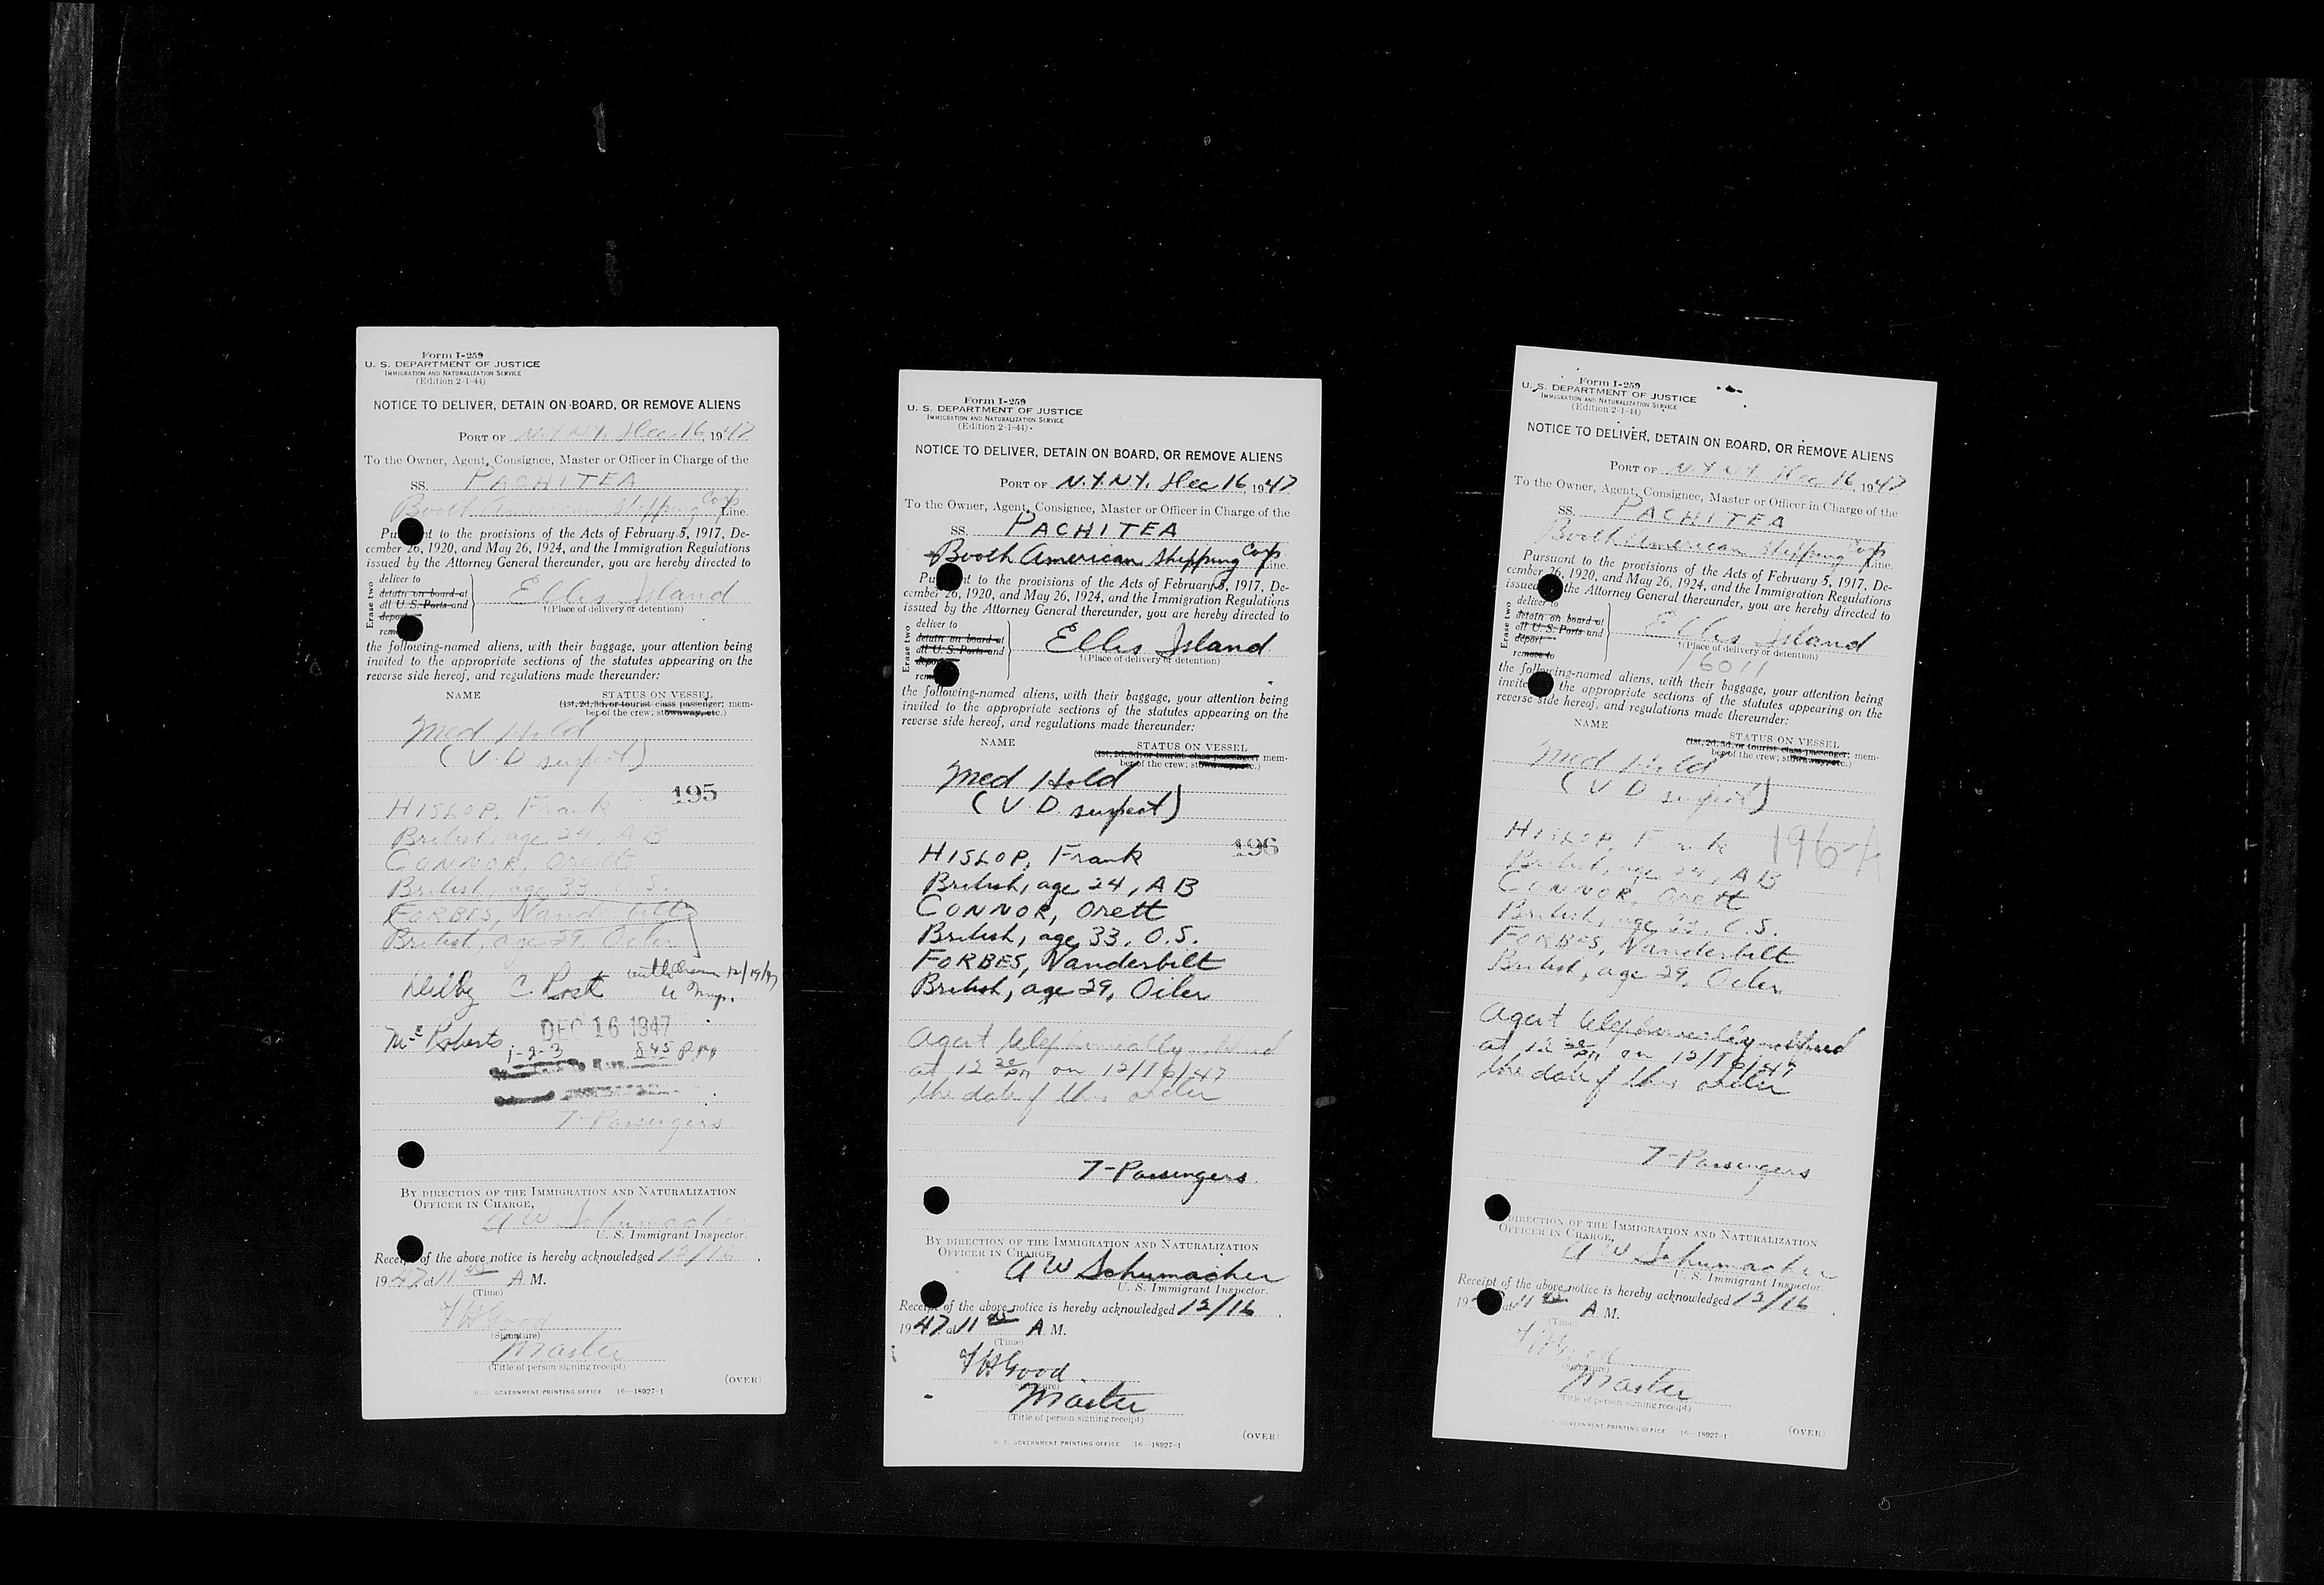 Form I-259
U. S. DEPARTMENT OF JUSTICE
IMMIGRATION AND NATURALIZATION SERVICE
(Edition 2-1-44)
NOTICE TO DELIVER, DETAIN ON BOARD, OR REMOVE ALIENS
PORT OF N.Y. N.Y. Dec 16, 1947
To the Owner, Agent, Consignee, Master or Officer in Charge of the
SS. PACHITEA
Booth American Shipping Corp Line.
Pu nt to the provisions of the Acts of February 5, 1917, De-
cember 26, 1920, and May 26, 1924, and the Immigration Regulations
issued by the Attorney General thereunder, you are hereby directed to
Erase two
deliver to
detain on board at
all U. S. Ports and
depor
rem
Ellis Island
†(Place of delivery or detention)
the following-named aliens, with their baggage, your attention being
invited to the appropriate sections of the statutes appearing on the
reverse side hereof, and regulations made thereunder:
NAME STATUS ON VESSEL
(1st, 2d, 3d, or tourist class passenger; mem-
ber of the crew; stowaway, etc.)
Med Hold
(V.D. suspect)
195
HISLOP, Frank
British, age 24, AB
CONNOR, Orett
British, age 33, O.S.
FORBES, Vanderbilt
British, age 29, Oiler
C. Post 12/19/47
Mc Roberts DEC 16 1947
1-2-3 8 45 P.M
7-Passengers
BY DIRECTION OF THE IMMIGRATION AND NATURALIZATION
OFFICER IN CHARGE,
A W Schumacher
U. S. Immigrant Inspector.
Receip of the above notice is hereby acknowledged 12/16
1947 at 11 A. M.
(Time)
F H Good
(Signature)
Master
(Title of person signing receipt)
(OVER)
U. S. GOVERNMENT PRINTING OFFICE 16—18927-1
Form I-259
U. S. DEPARTMENT OF JUSTICE
IMMIGRATION AND NATURALIZATION SERVICE
(Edition 2-1-44)
NOTICE TO DELIVER, DETAIN ON BOARD, OR REMOVE ALIENS
PORT OF N.Y. N.Y. Dec 16, 1947
To the Owner, Agent, Consignee, Master or Officer in Charge of the
SS. PACHITEA
Booth American Shipping Corp Line.
Pu nt to the provisions of the Acts of February 5, 1917, De-
cember 26, 1920, and May 26, 1924, and the Immigration Regulations
issued by the Attorney General thereunder, you are hereby directed to
Erase two
deliver to
detain on board at
all U. S. Ports and
depor
rem
Ellis Island
†(Place of delivery or detention)
the following-named aliens, with their baggage, your attention being
invited to the appropriate sections of the statutes appearing on the
reverse side hereof, and regulations made thereunder:
NAME STATUS ON VESSEL
(1st, 2d, 3d, or tourist class passenger; mem-
ber of the crew; stowaway, etc.)
Med Hold
(V.D. suspect)
196
HISLOP, Frank
British, age 24, AB
CONNOR, Orett
British, age 33, O.S.
FORBES, Vanderbilt
British, age 29, Oiler
Agent telephonically notified
at 12 30 PM on 12/16/47
the date of this order
7-Passengers
BY DIRECTION OF THE IMMIGRATION AND NATURALIZATION
OFFICER IN CHARGE,
A W Schumacher
U. S. Immigrant Inspector.
Receipt of the above notice is hereby acknowledged 12/16
1947 at 11 A. M.
(Time)
F H Good
(Signature)
Master
(Title of person signing receipt)
(OVER)
U. S. GOVERNMENT PRINTING OFFICE 16—18927-1
Form I-259
U. S. DEPARTMENT OF JUSTICE
IMMIGRATION AND NATURALIZATION SERVICE
(Edition 2-1-44)
NOTICE TO DELIVER, DETAIN ON BOARD, OR REMOVE ALIENS
PORT OF N.Y. N.Y. Dec 16, 1947
To the Owner, Agent, Consignee, Master or Officer in Charge of the
SS. PACHITEA
Booth American Shipping Corp Line.
Pursuant to the provisions of the Acts of February 5, 1917, De-
cember 26, 1920, and May 26, 1924, and the Immigration Regulations
issued the Attorney General thereunder, you are hereby directed to
Erase two
deliver to
detain on board at
all U. S. Ports and
deport
remove to
Ellis Island
†(Place of delivery or detention)
16011
the following-named aliens, with their baggage, your attention being
invite the appropriate sections of the statutes appearing on the
reverse side hereof, and regulations made thereunder:
NAME STATUS ON VESSEL
(1st, 2d, 3d, or tourist class passenger; mem-
ber of the crew; stowaway, etc.)
Med Hold
(V.D. suspect)
196-A
HISLOP, Frank
British, age 24, AB
CONNOR, Orett
British, age 33, O.S.
FORBES, Vanderbilt
British, age 29, Oiler
Agent telephonically notified
at 12 30 PM on 12/16/47
the date of this order
7-Passengers
DIRECTION OF THE IMMIGRATION AND NATURALIZATION
OFFICER IN CHARGE,
A W Schumacher
U. S. Immigrant Inspector
Receipt of the above notice is hereby acknowledged 12/16
19 at 11 A. M.
(Time)
F H Good
(Signature)
Master
(Title of person signing receipt)
(OVER)
U. S. GOVERNMENT PRINTING OFFICE 16—18927-1